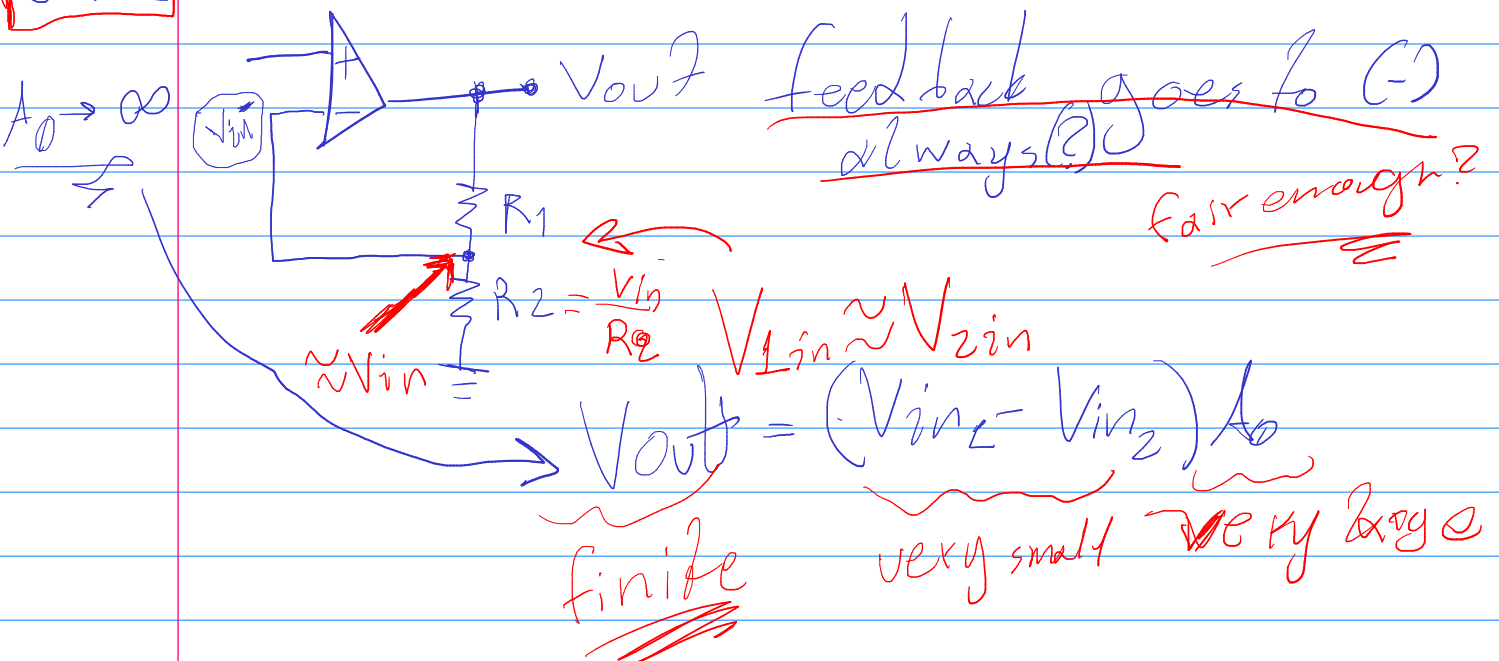 Vout? feedback goes to (-)
A0 → ∞ Vin + −
always(?)
fair enough?
R1
R2 = Vin/R2
≈Vin
V1in ≈ V2in
Vout = (Vin1 - Vin2) A0
finite very small very large